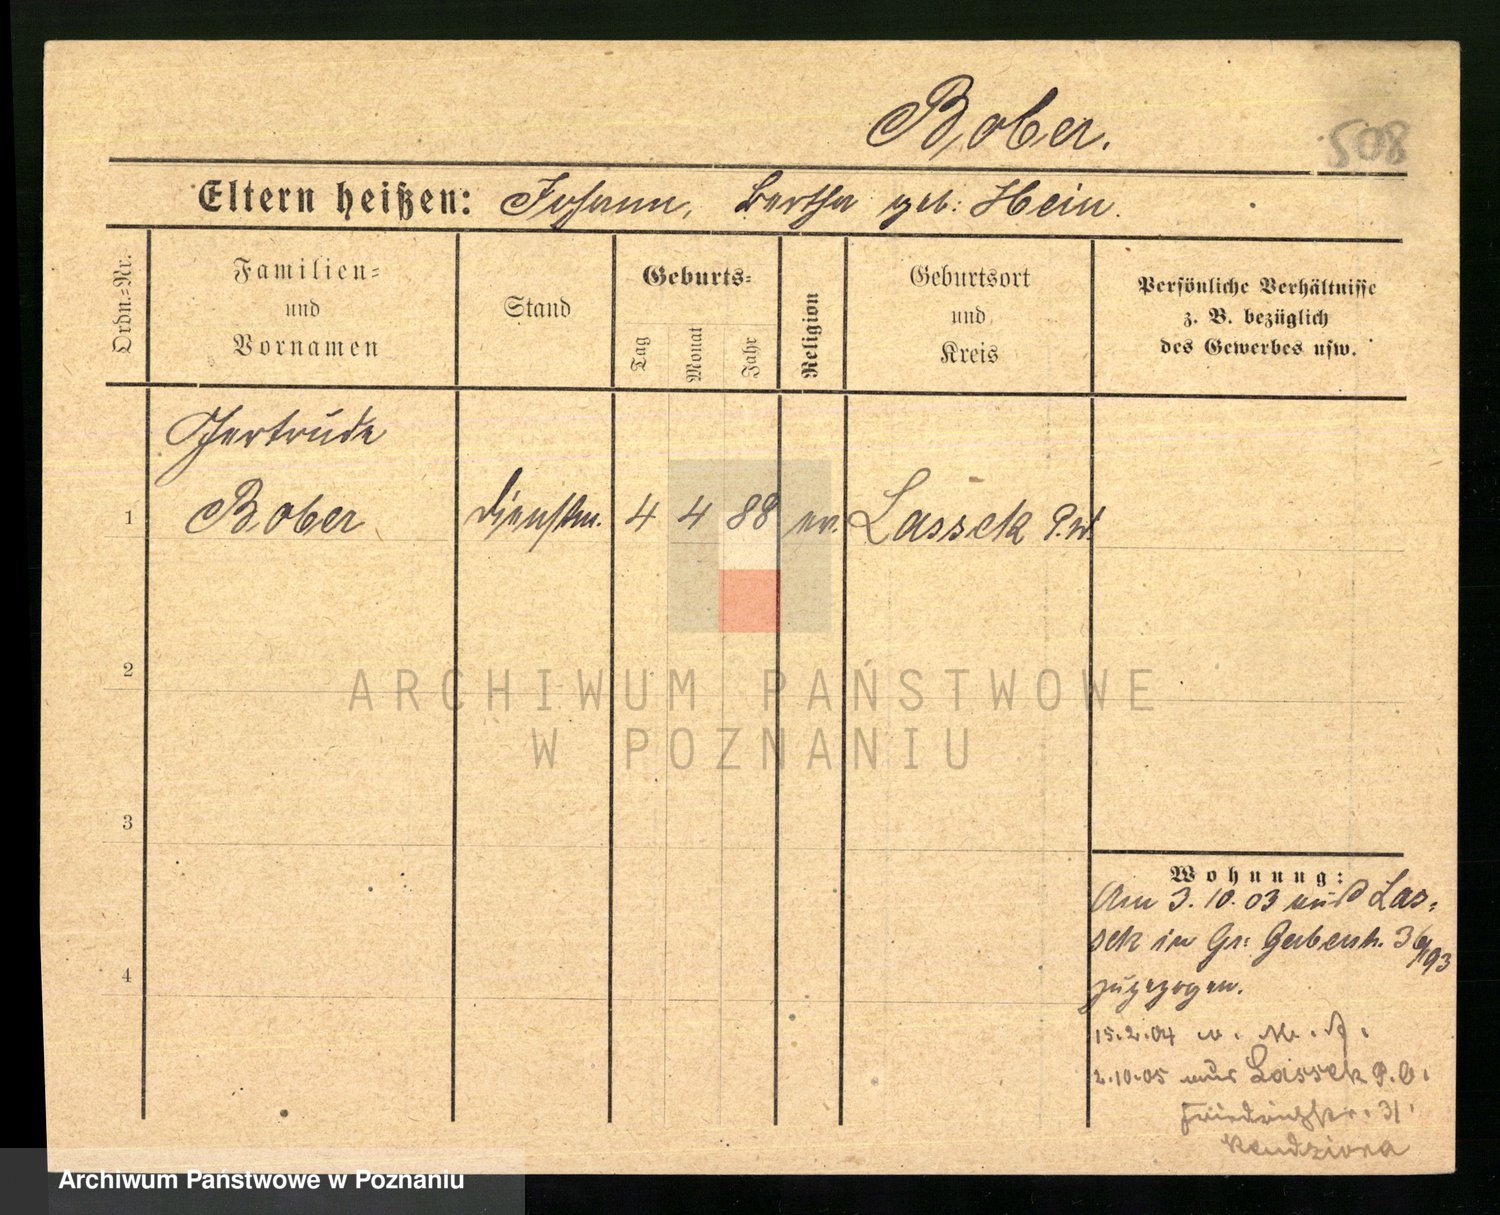 Bober.
508
Eltern heißen: Johann, Bertha geb: Hein.
Ordn.=Nr.
Familien=
und
Vornamen
Stand
Geburts=
Tag
Monat
Jahr
Religion
Geburtsort
und
Kreis
Persönliche Verhältnisse
z. B. bezüglich
des Gewerbes usw.
Gertrude
1 Bober Dienstm. 4 4 88 ev. Lassek P.W.
2
3
4
Wohnung:
Am 3.10.03 aus Las=
sek in Gr: Gerberstr. 36
zugezogen.
15.2.04
2.10.05 aus Lassek P.O.
Friedrichstr. 31
Kendziora
ARCHIWUM PAŃSTWOWE
W POZNANIU
Archiwum Państwowe w Poznaniu